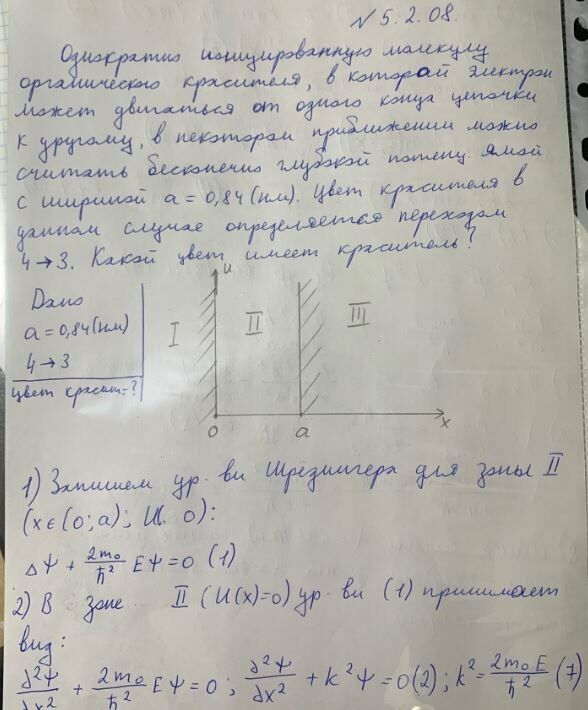 N 5.2.08.
Однократно ионизированную молекулу
органического красителя, в которой электрон
может двигаться от одного конца цепочки
к другому, в некотором приближении можно
считать бесконечно глубокой потенц. ямой
с шириной a = 0,84 (нм). Цвет красителя в
данном случае определяется переходом
4→3. Какой цвет имеет краситель?
Дано
a = 0,84 (нм)
4→3
Цвет красит-?
u
I II III
0 a x
1) Запишем ур-ви Шрёдингера для зоны II
(x∈(0;a); U(. 0):
ΔΨ + 2m₀/ħ² EΨ = 0 (1)
2) В зоне II (U(x)=0) ур-ви (1) принимает
вид:
∂²Ψ/∂x² + 2m₀/ħ² EΨ = 0; ∂²Ψ/∂x² + k²Ψ = 0 (2); k² = 2m₀E/ħ² (7)